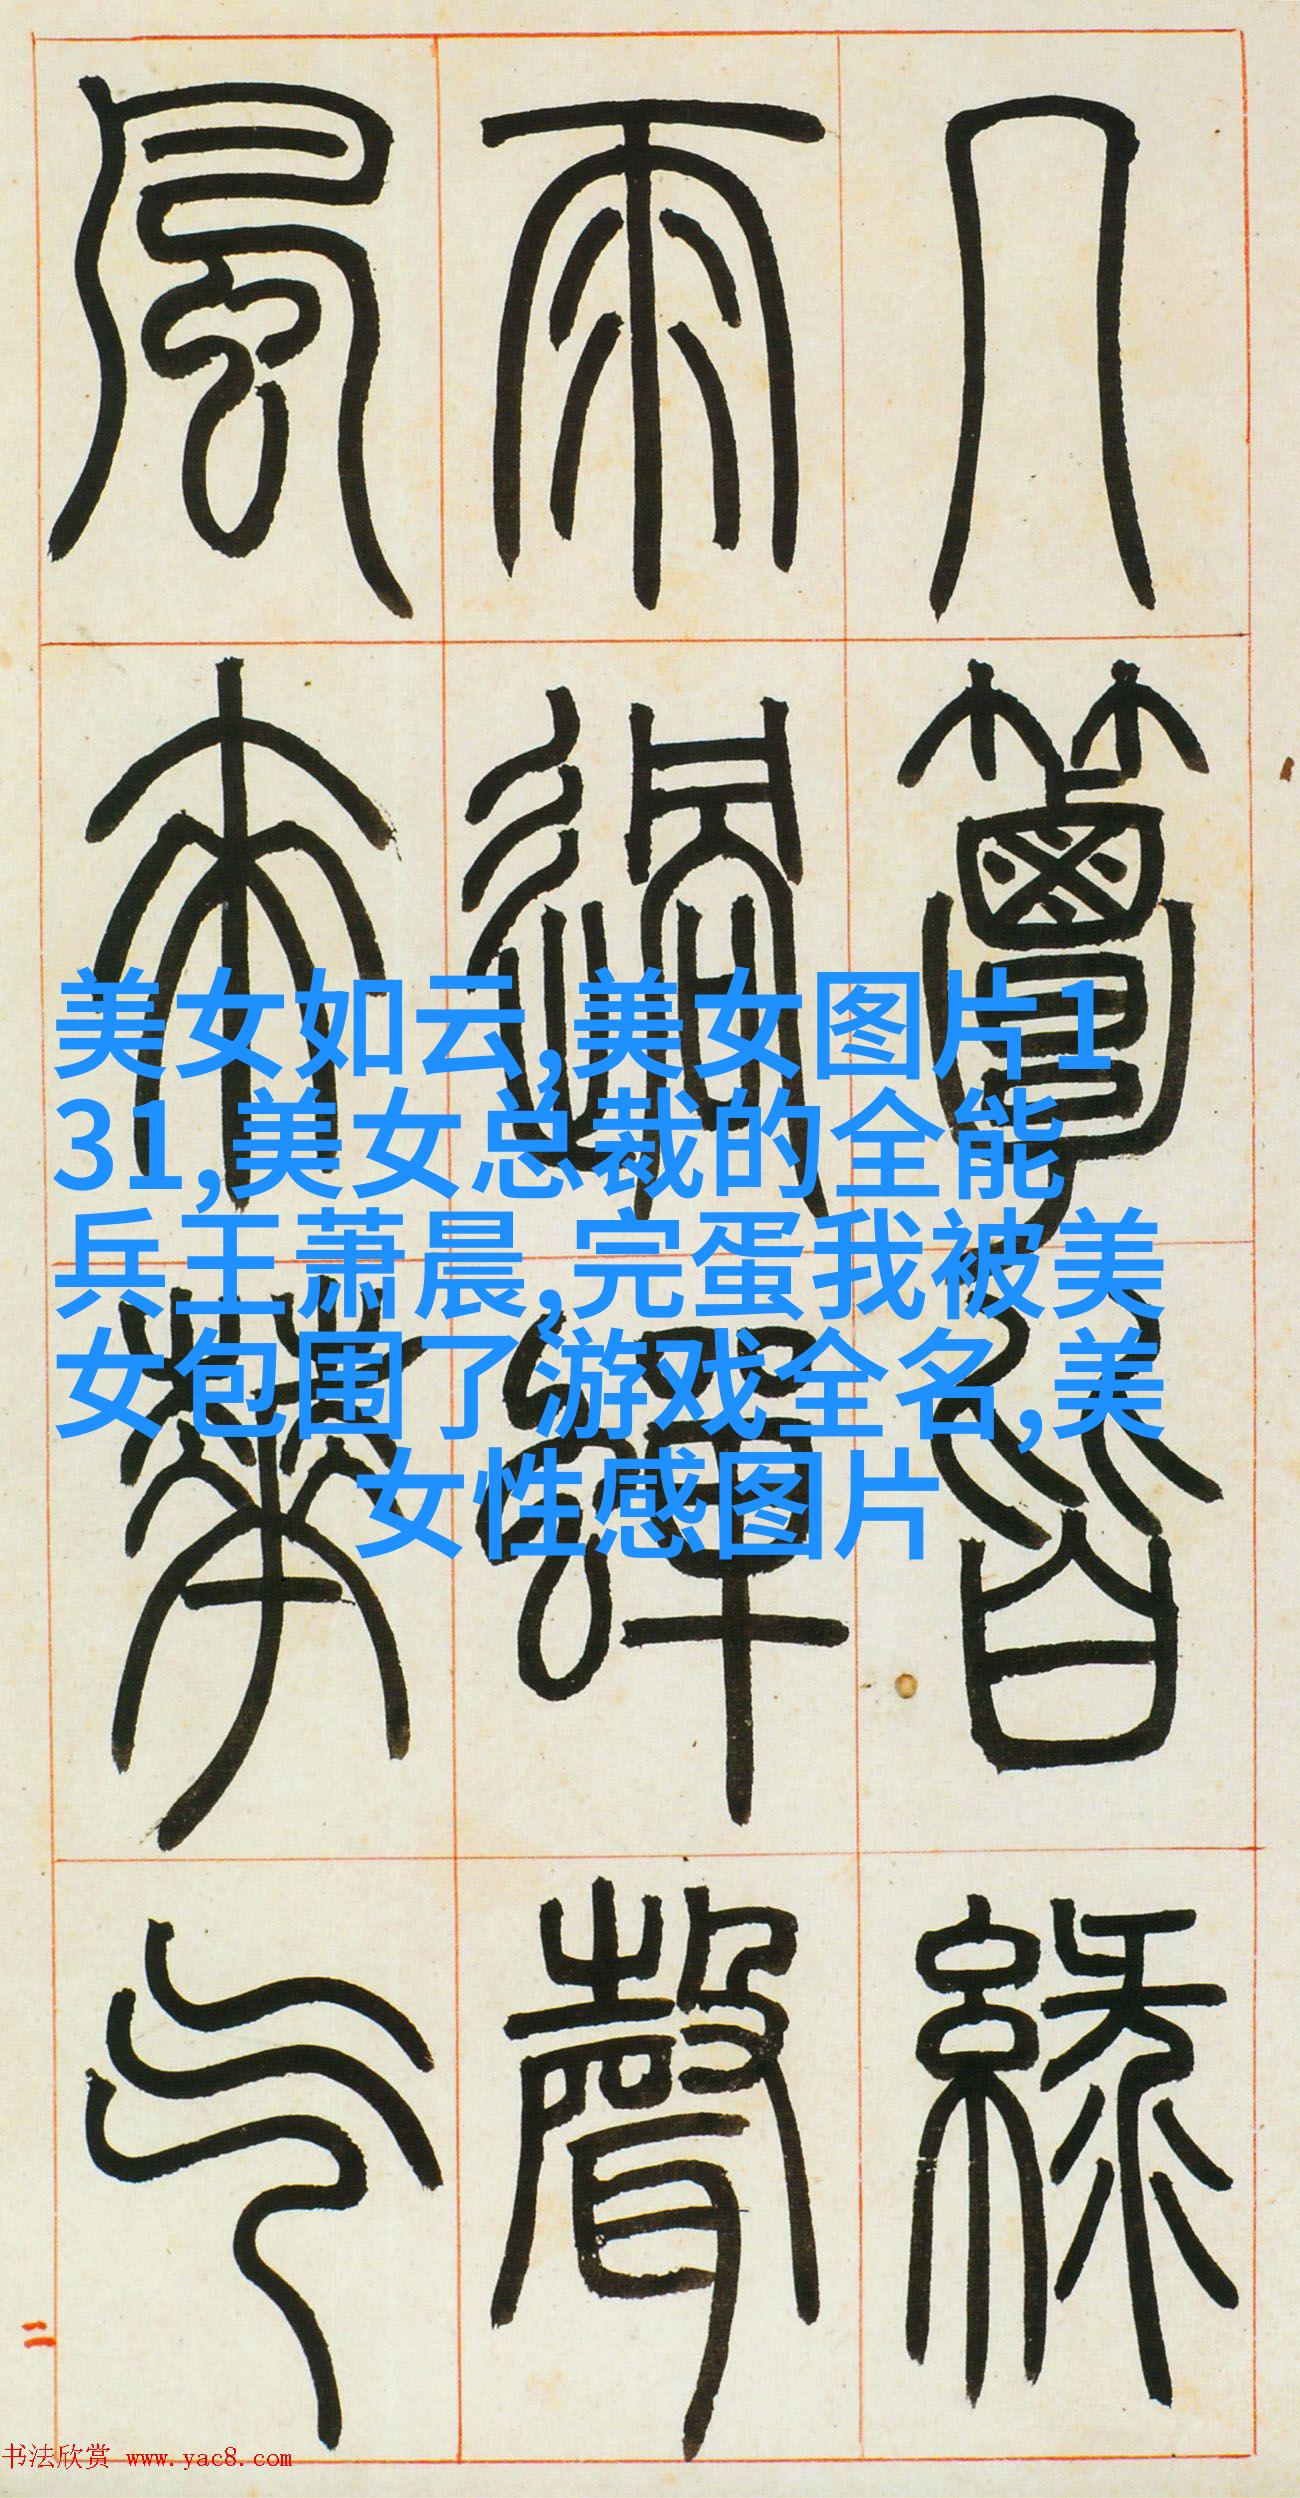 几簟皆綠
雨過蟬聲
風來華气
美女如云,美女图片1
31,美女总裁的全能
兵王萧晨,完蛋我被美
女包围了游戏全名,美
女性感图片
二
书法欣赏 www.yac8.com